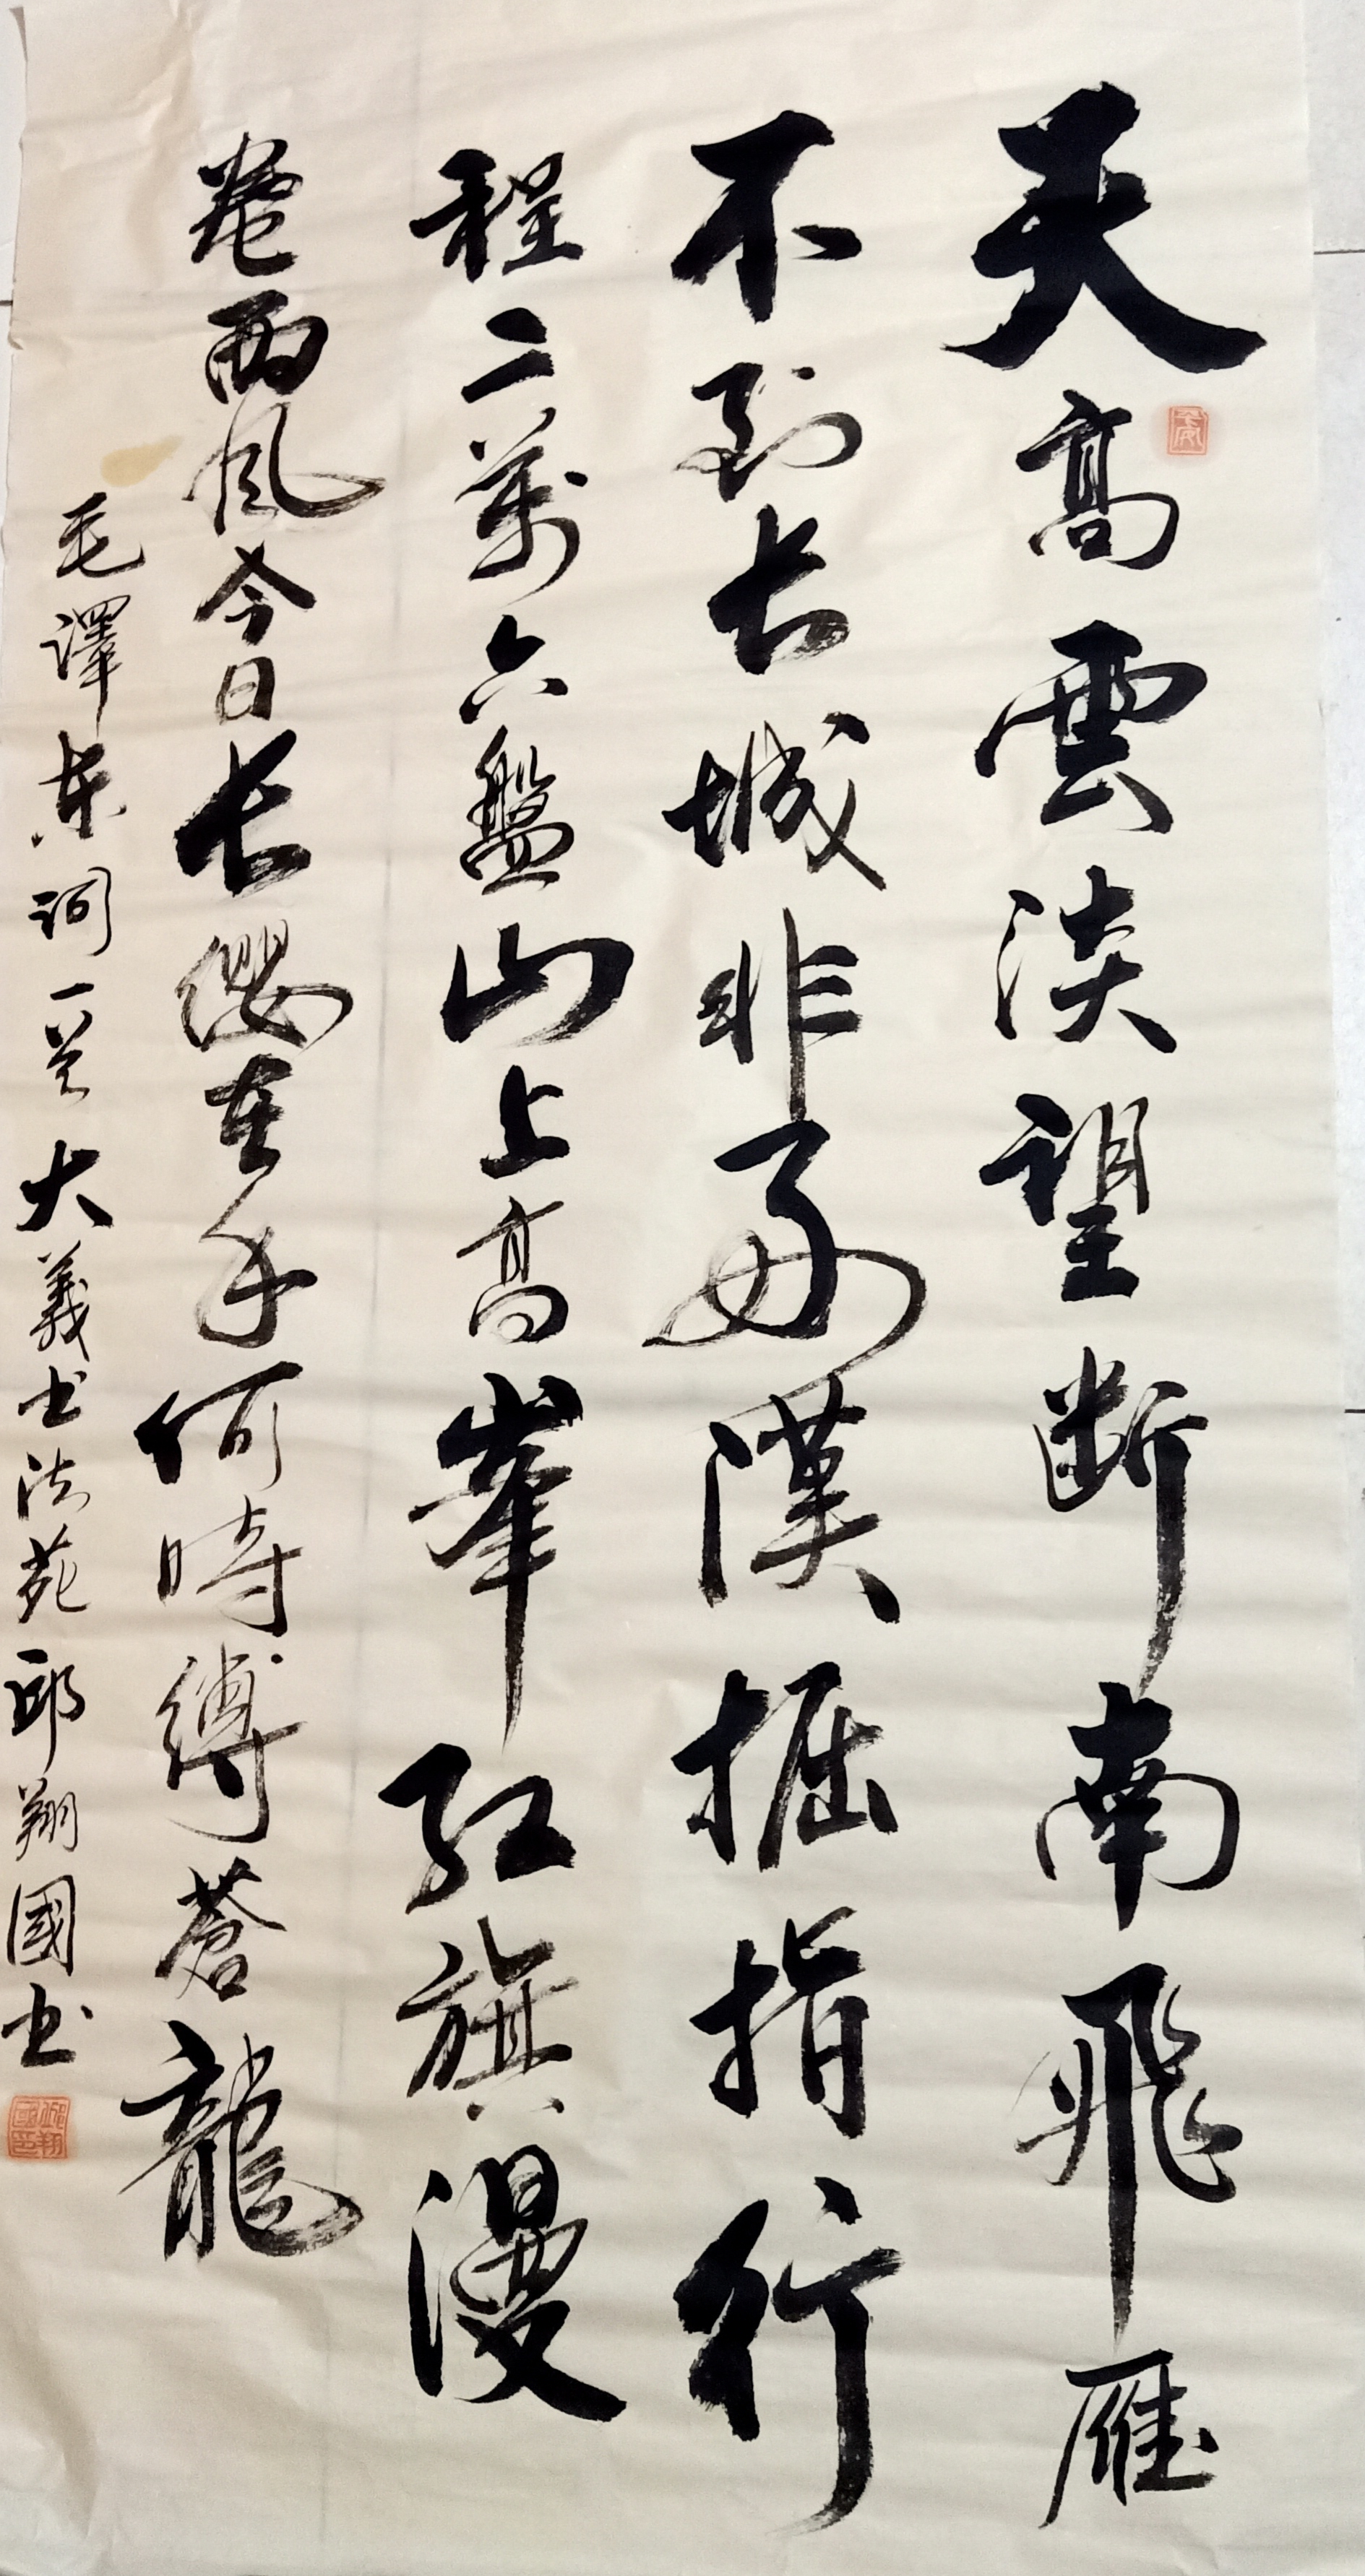 天高雲淡望斷南飛雁
不到长城非好漢掘指行
程二萬六盤山上高峯紅旗漫
卷西風今日长纓在手何時縛蒼龍
毛澤东词一首大義书法苑邱翔國书
邱翔國印